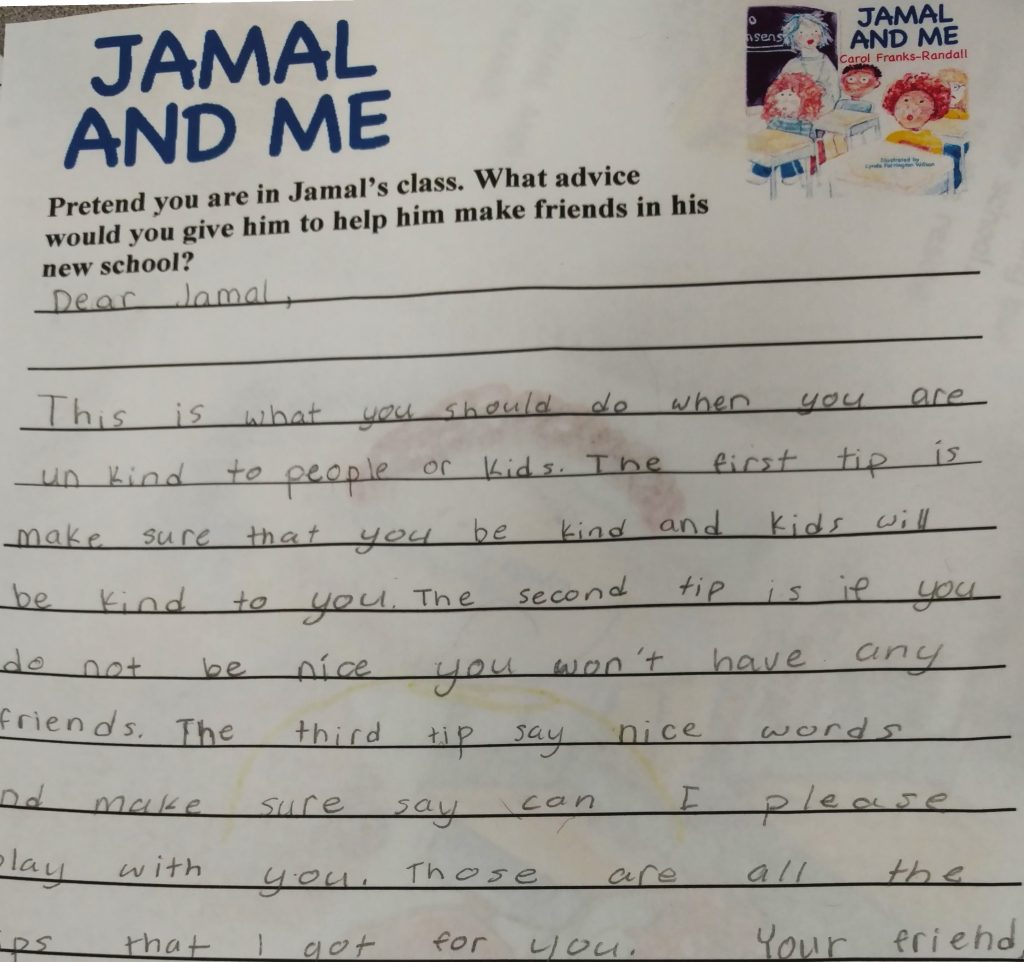 JAMAL
AND ME
JAMAL
AND ME
Carol Franks-Randall
Illustrated by
Lynda Farrington-Wilson
Pretend you are in Jamal's class. What advice
would you give him to help him make friends in his
new school?
Dear Jamal,
This is what you should do when you are
un kind to people or kids. The first tip is
make sure that you be kind and kids will
be kind to you. The second tip is if you
do not be nice you won't have any
friends. The third tip say nice words
nd make sure say can I please
play with you. Those are all the
ips that I got for you. Your friend,